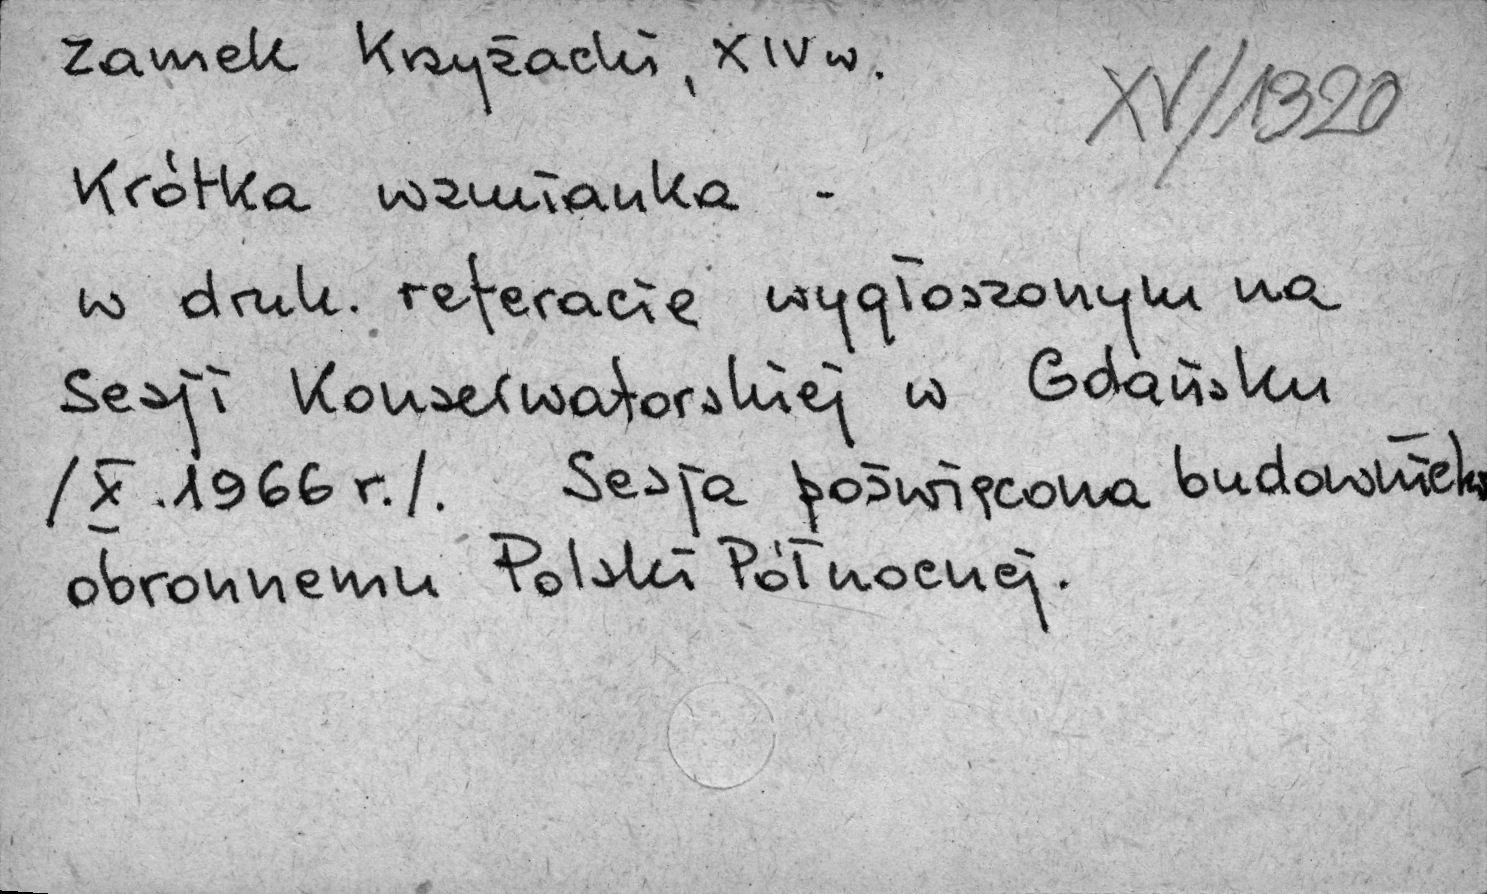 Zamek Krzyżacki, XIV w.
XV/1320
Krótka wzmianka -
w druk. referacie wygłoszonym na
Sesji Konserwatorskiej w Gdańsku
/X.1966 r./. Sesja poświęcona
obronnemu Polski Północnej.